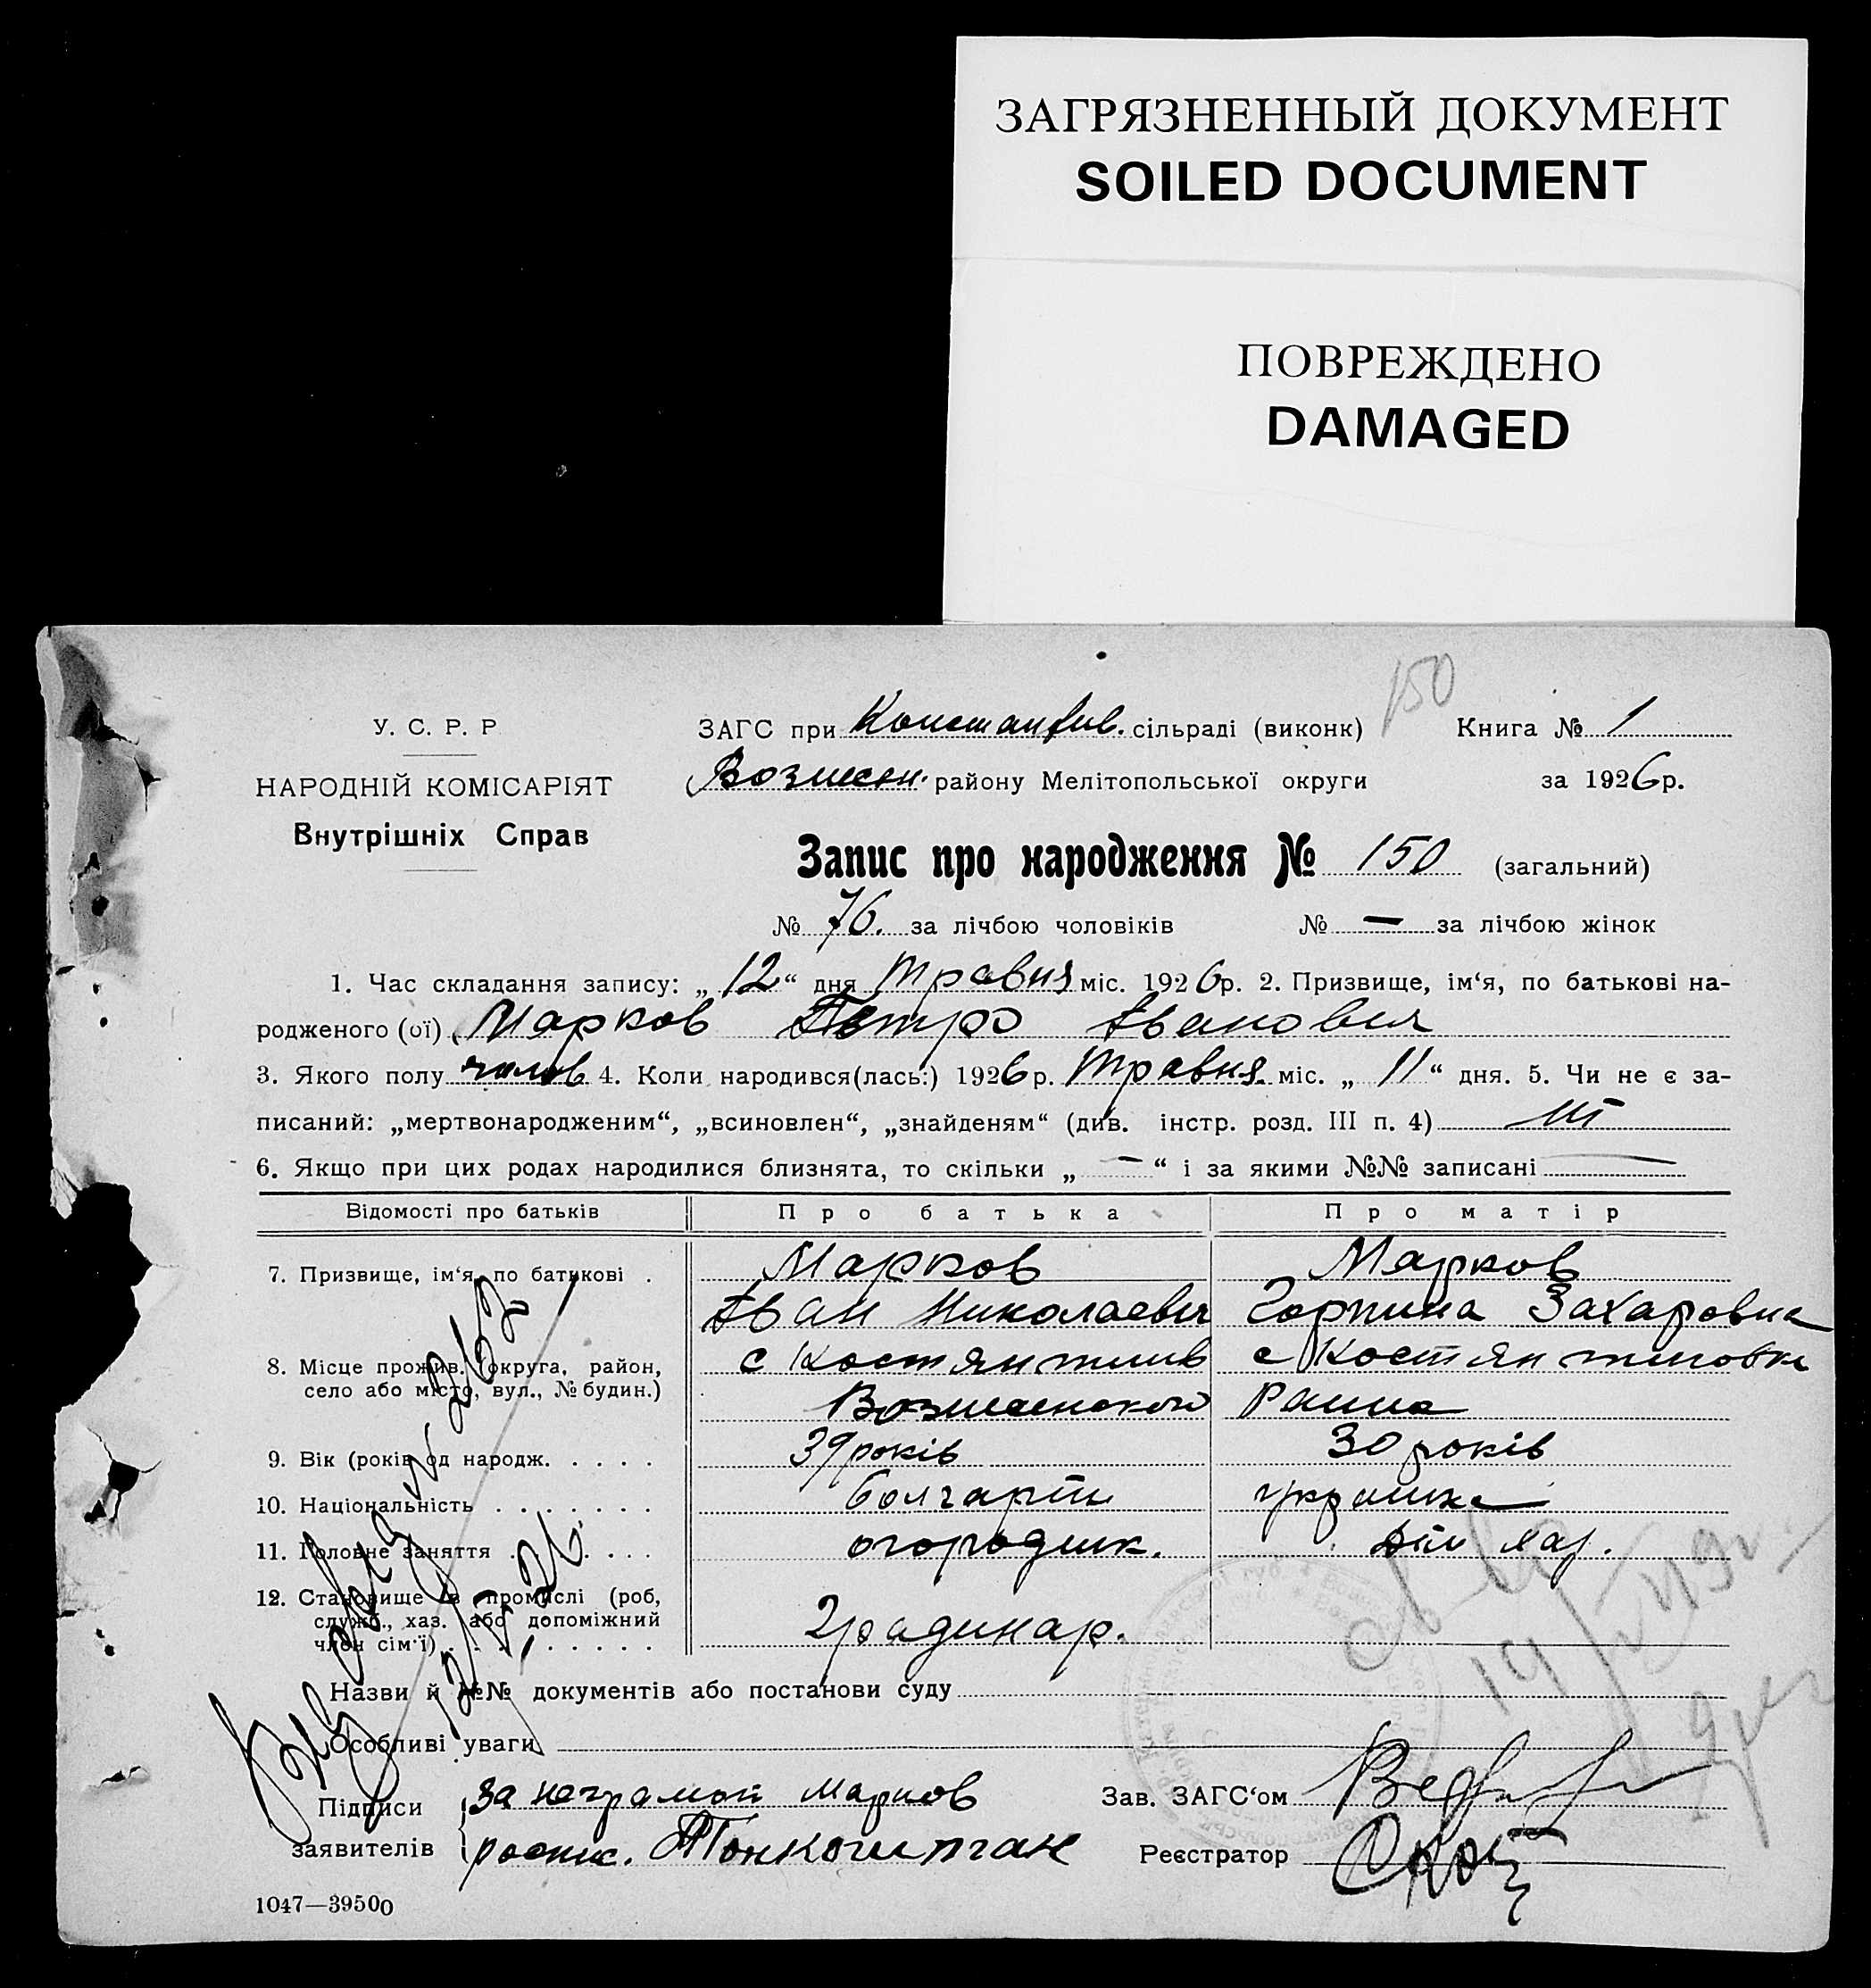 ЗАГРЯЗНЕННЫЙ ДОКУМЕНТ
SOILED DOCUMENT
ПОВРЕЖДЕНО
DAMAGED
150
У. С. Р. Р
НАРОДНІЙ КОМІСАРІЯТ
Внутрішніх Справ
ЗАГС при Константив. сільраді (виконк) Книга № 1
Вознесен. району Мелітопольської округи за 1926 р.
Запис про народження № 150 (загальний)
№ 76. за лічбою чоловіків № — за лічбою жінок
1. Час складання запису: „12“ дня Травня міс. 1926р. 2. Призвище, ім‘я, по батькові на-
родженого (ої) Марков Петро Іванович
3. Якого полу чолов 4. Коли народився(лась:) 1926 р. Травня міс. „11“ дня. 5. Чи не є за-
писаний: „мертвонародженим“, „всиновлен“, „знайденям“ (див. інстр. розд. III п. 4)
6. Якщо при цих родах народилися близнята, то скільки „—“ і за якими №№ записані —
Відомості про батьків Про батька Про матір
7. Призвище, ім‘я, по батькові . Марков Марков
Іван Николаевич Горпина Захаровна
8. Місце прожив. (округа, район, с Костянтинив с Костянтиновка
село або місто, вул., № будин.)
Вознесенского
9. Вік (років од народж. . . . . 39 років 30 років
10. Національність . . . . . . . болгарин украинка
11. Головне заняття . . . . . . огородник.
12. Становище в промислі (роб,
служб., хаз. або допоміжний
член сім‘ї) . . . . . . . . Градинар.
Назви й №№ документів або постанови суду
Особливі уваги
Підписи
заявителів
За неграмот Марков
роспис.
Зав. ЗАГС‘ом
Реєстратор
1047—39500
№ 262
12/V 26